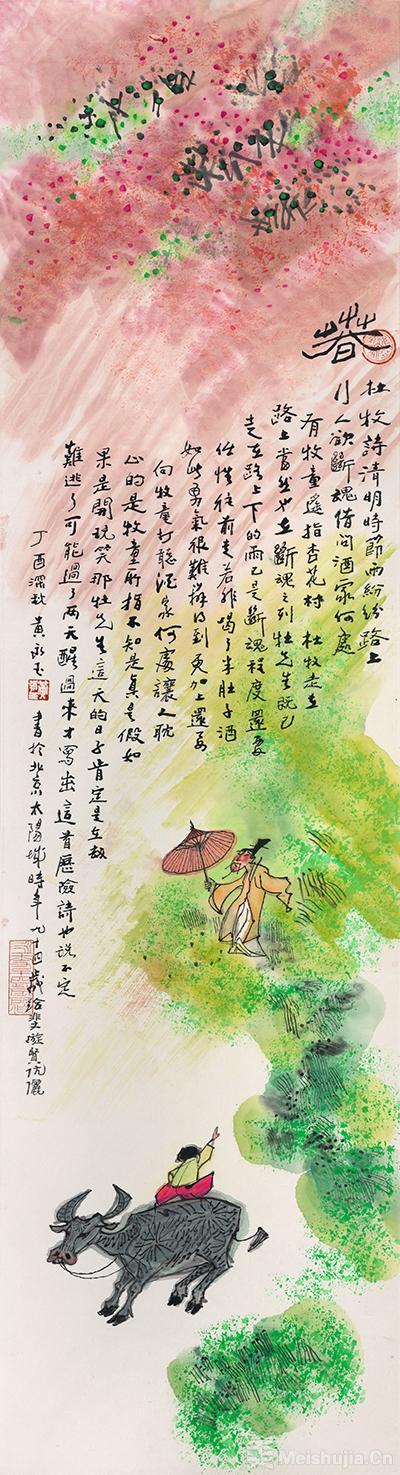 春
杜牧詩清明時節雨紛紛路上
行人欲斷魂借問酒家何處
有牧童遙指杏花村 杜牧走在
路上當然也在斷魂之列杜先生既已
走在路上下的雨已是斷魂程度還要
任性往前走若非喝了半肚子酒
如此勇氣很難辦得到更加上還要
向牧童打聽酒家何處讓人耽
心的是牧童所指不知是真是假如
果是開玩笑那杜先生這天的日子肯定是在劫
難逃了可能過了兩天醒過來才寫出這首歷險詩也說不定
丁酉深秋 黃永玉 書於北京太陽城時年九十四歲
Meishujia.Cn